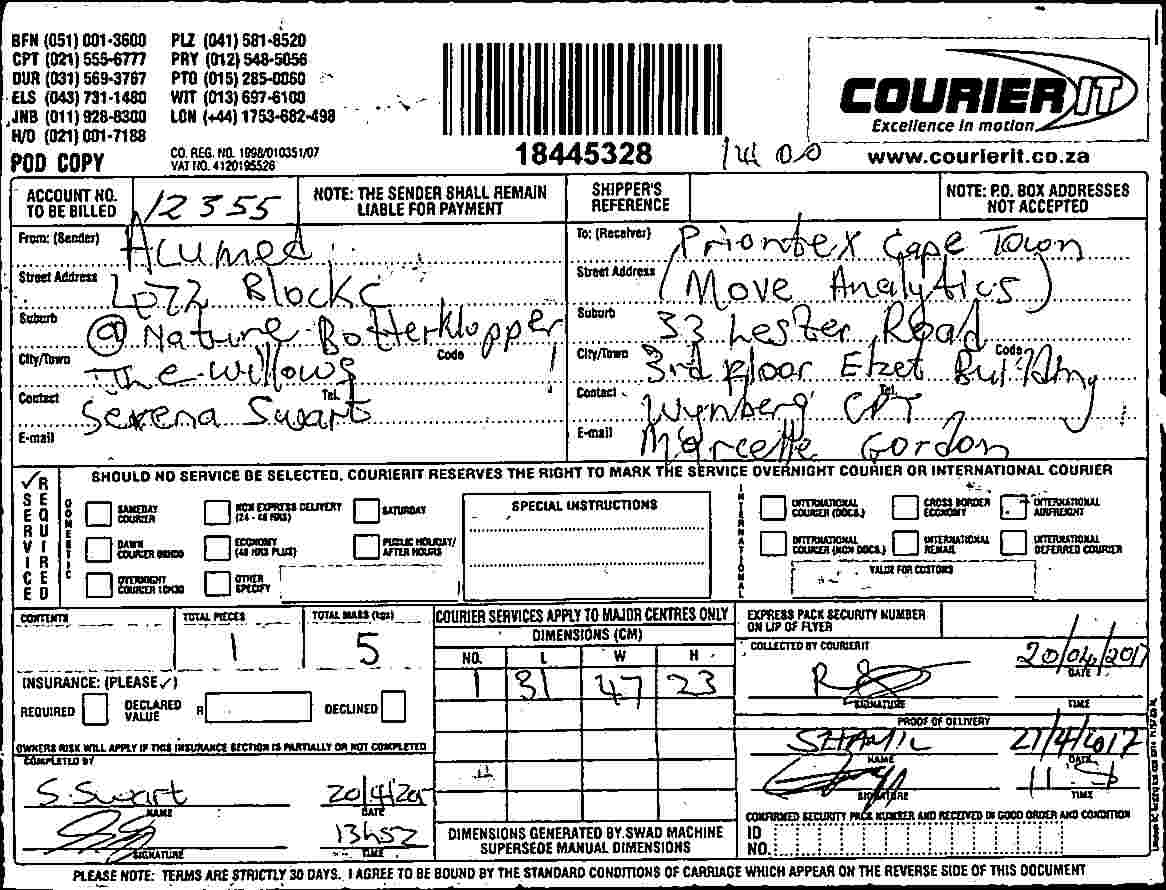 BFN (051) 001-3600 PLZ (041) 581-8520
CPT (021) 555-6777 PRY (012) 548-5056
DUR (031) 569-3767 PTO (015) 285-0060
ELS (043) 731-1480 WIT (013) 697-6100
JNB (011) 928-8300 LON (+44) 1753-682-498
H/O (021) 001-7188
POD COPY
CO. REG. NO. 1998/010351/07
VAT NO. 4120195526
18445328
COURIER IT
Excellence in motion
www.courierit.co.za
ACCOUNT NO. TO BE BILLED 12355
NOTE: THE SENDER SHALL REMAIN LIABLE FOR PAYMENT
SHIPPER'S REFERENCE
NOTE: P.O. BOX ADDRESSES NOT ACCEPTED
From: (Sender) Acumed
Street Address Block C
Suburb @ Nature Botterklapper
City/Town The Willows Code
Contact Serena Swart Tel.
E-mail
To: (Receiver) Priontex Cape Town
Street Address (Move Analytics)
Suburb 33 Lester Road
City/Town 3rd Floor Etzet Building Code
Contact Wynberg CPT Tel.
E-mail Marcelle Gordon
SERVICE REQUIRED
SHOULD NO SERVICE BE SELECTED, COURIERIT RESERVES THE RIGHT TO MARK THE SERVICE OVERNIGHT COURIER OR INTERNATIONAL COURIER
DOMESTIC
SAMEDAY COURIER
NON EXPRESS DELIVERY (24 - 48 HRS)
SATURDAY
DAWN COURIER
ECONOMY (48 HRS PLUS)
PUBLIC HOLIDAY/ AFTER HOURS
OVERNIGHT COURIER 10H30
OTHER SPECIFY
SPECIAL INSTRUCTIONS
INTERNATIONAL
INTERNATIONAL COURIER (DOCS.)
CROSS BORDER ECONOMY
INTERNATIONAL AIRFREIGHT
INTERNATIONAL COURIER (NON DOCS.)
INTERNATIONAL REMAIL
INTERNATIONAL DEFERRED COURIER
VALUE FOR CUSTOMS
CONTENTS
TOTAL PIECES 1
TOTAL MASS (kgs) 5
INSURANCE: (PLEASE ✓)
REQUIRED
DECLARED VALUE R
DECLINED
OWNERS RISK WILL APPLY IF THIS INSURANCE SECTION IS PARTIALLY OR NOT COMPLETED
COURIER SERVICES APPLY TO MAJOR CENTRES ONLY
DIMENSIONS (CM)
NO. L W H
1 31 47 23
DIMENSIONS GENERATED BY SWAD MACHINE SUPERSEDE MANUAL DIMENSIONS
COMPLETED BY
S. Swart
NAME
20/4/20
DATE
SIGNATURE
13h52
TIME
EXPRESS PACK SECURITY NUMBER ON LIP OF FLYER
COLLECTED BY COURIERIT
SIGNATURE
20/04/2017
DATE
TIME
PROOF OF DELIVERY
SHAMIL
NAME
21/4/2017
DATE
SIGNATURE
TIME
CONFIRMED SECURITY PACK NUMBER AND RECEIVED IN GOOD ORDER AND CONDITION
ID NO.
PLEASE NOTE: TERMS ARE STRICTLY 30 DAYS. I AGREE TO BE BOUND BY THE STANDARD CONDITIONS OF CARRIAGE WHICH APPEAR ON THE REVERSE SIDE OF THIS DOCUMENT